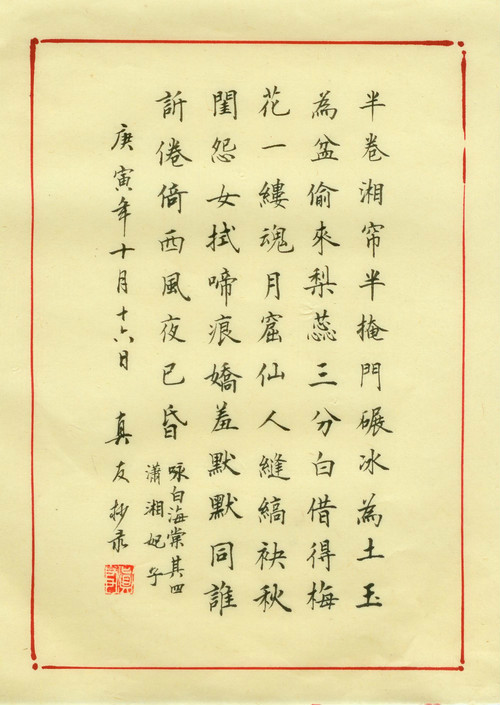 半卷湘帘半掩門碾冰為土玉
為盆偷來梨蕊三分白借得梅
花一縷魂月窟仙人縫縞袂秋
閨怨女拭啼痕嬌羞默默同誰
訴倦倚西風夜已昏
咏白海棠其四
瀟湘妃子
庚寅年十月十六日 真友抄录